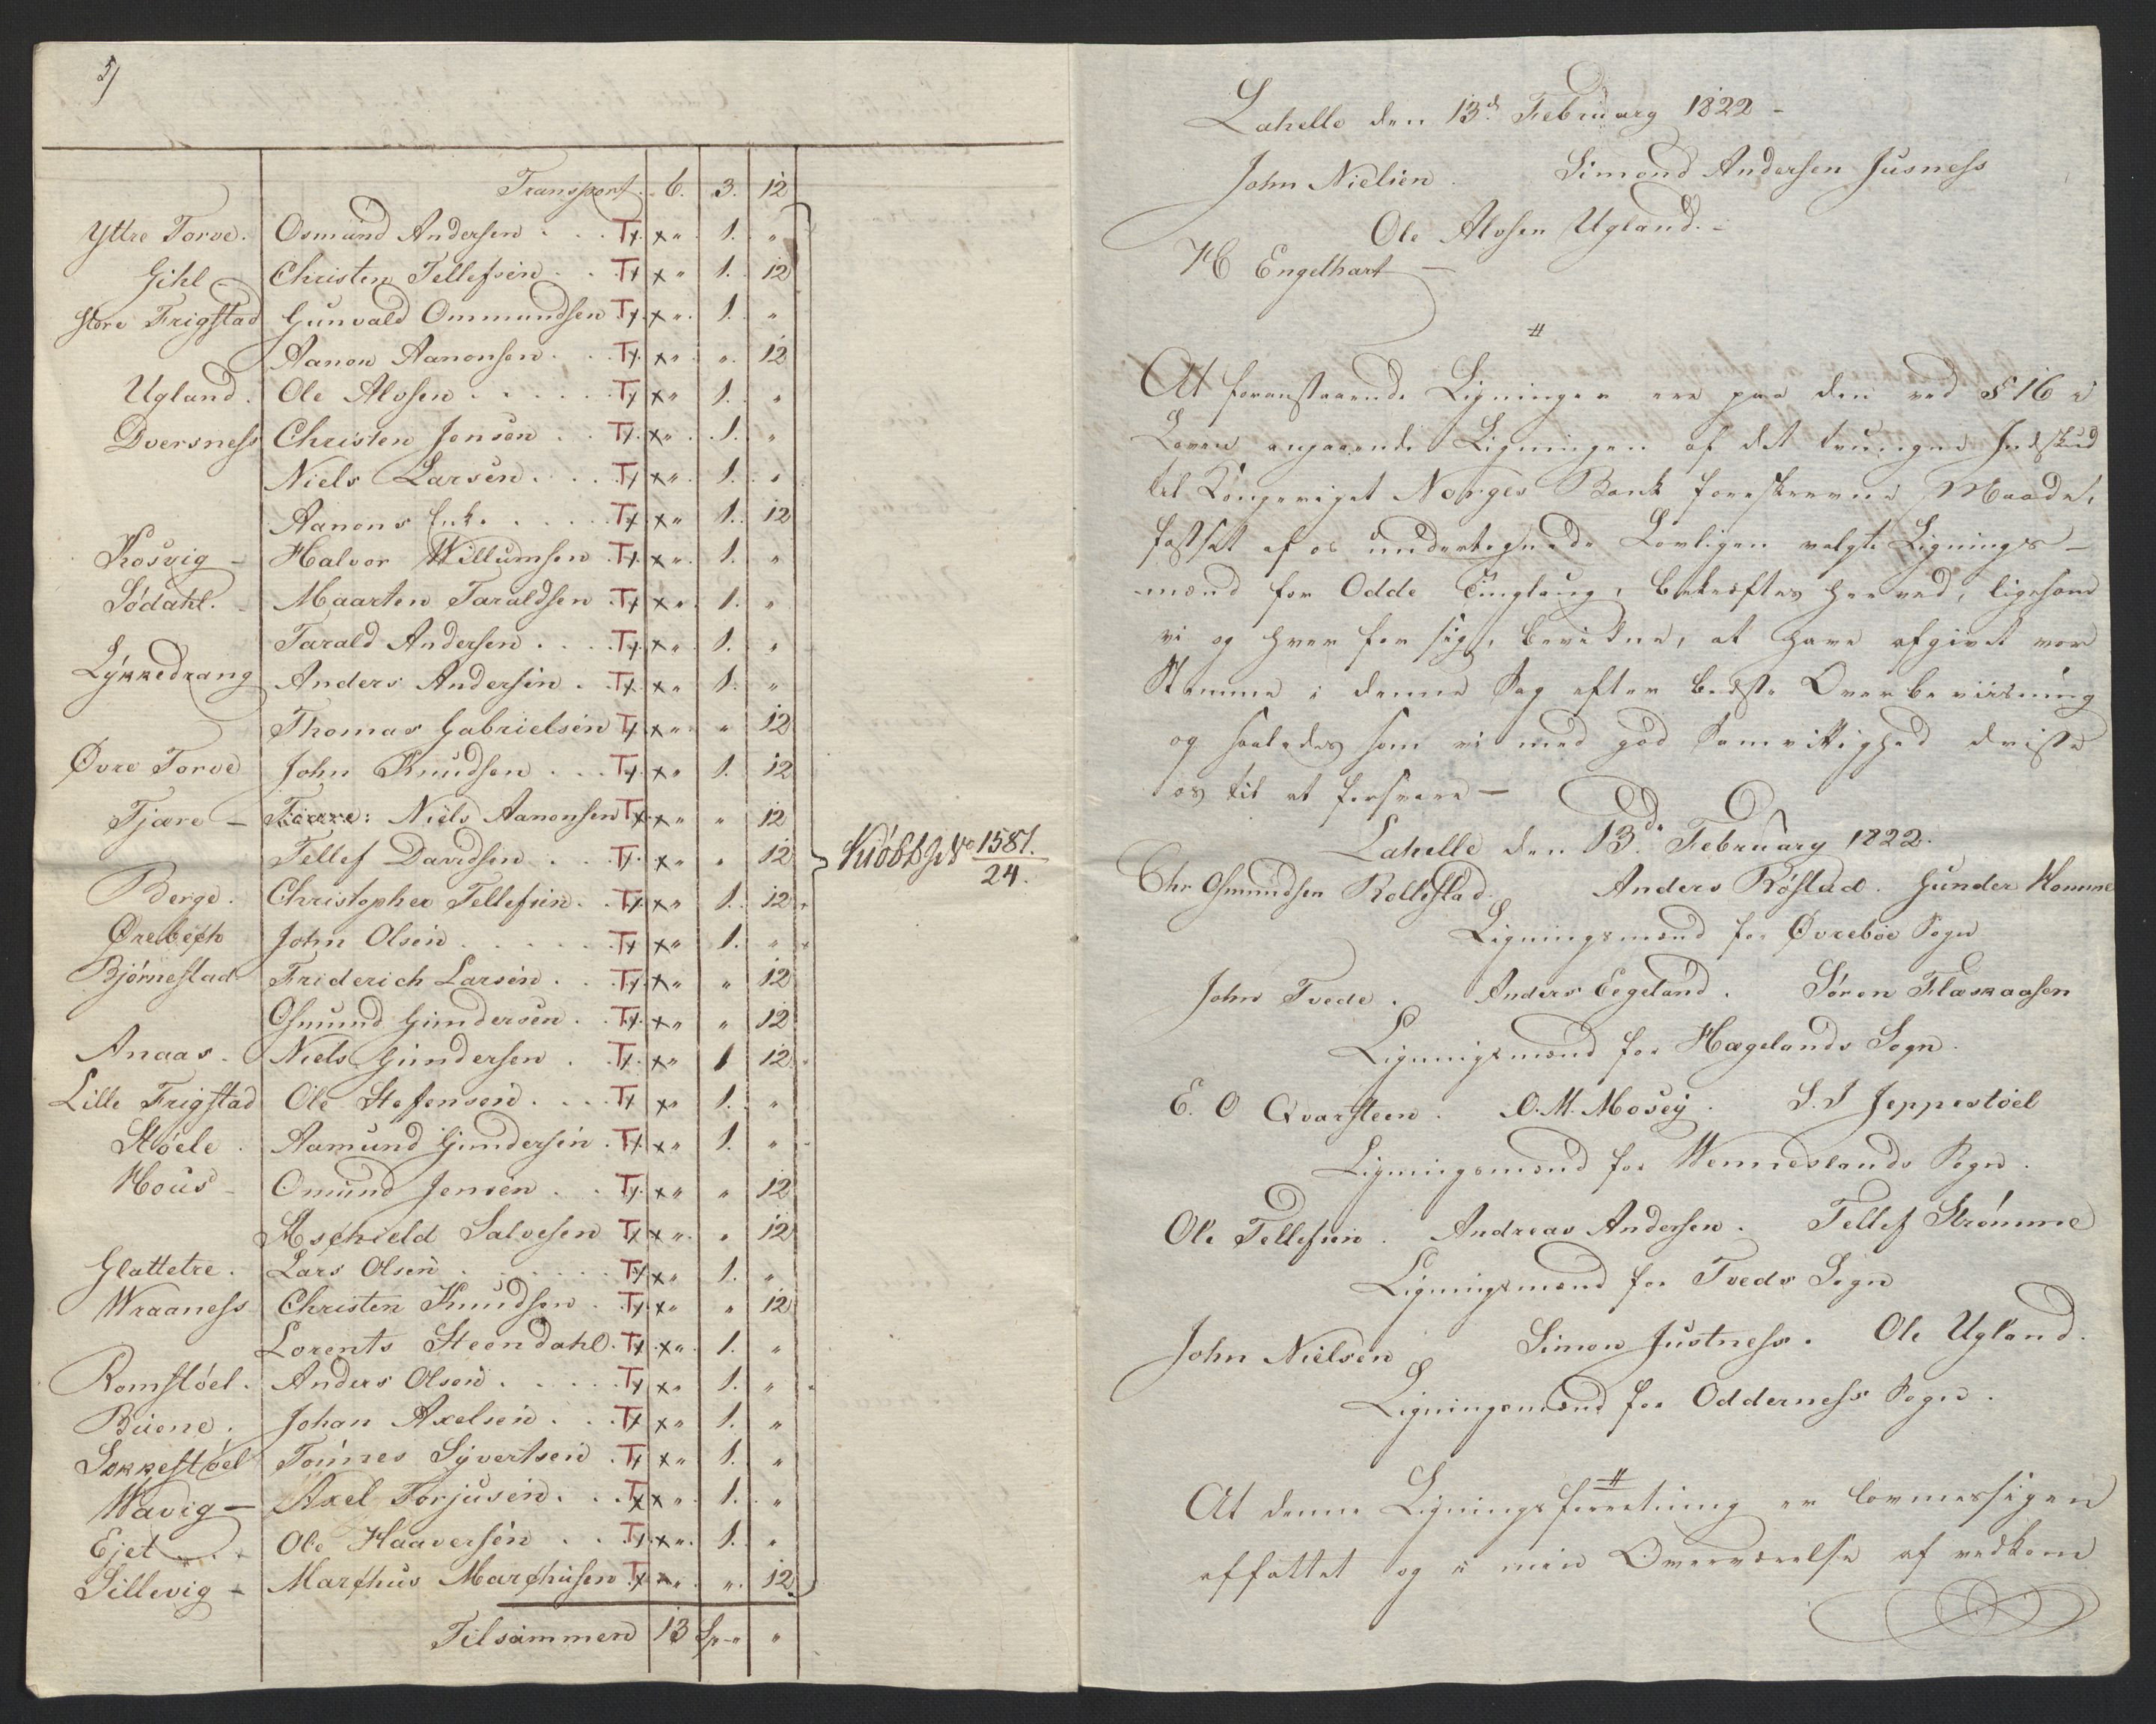 5/
Transport. 6. 3. 12
Yttre Torve. Osmund Andersen . . . Tx. x „ 1. „
Gihl – Christen Tellefsen . . Tx x „ 1. 12
Store Frigstad Gunvald Ommundsen Tx. x „ 1. „
Aanon Aanonsen . . . Tx. x „ „ 12
Ugland. Ole Alvsen . . . . . . Tx x „ 1. „
Dversness Christen Jensen . . Tx. x „ 1. „
Niels Larsen . . . . Tx x „ 1. „
Aanons Enke . . . . . Tx. x „ 1. 12
Kosvig – Halvor Willumsen . Tx. x „ 1. „
Södahl. Maarten Taraldsen . Tx x „ 1. „
Tarald Andersen . . . . Tx. x „ 1. „
Lykkedrang Anders Andersen . Tx. x „ 1. „
Thomas Gabrielsen Tx x „ „ 12
Øvre Torve John Knudsen . . . Tx. x „ 1. 12
Tjære – Niels Aanonsen Tx. x „ „ 12
Tellef Davidsen . . . Tx. x „ „ 12
Kiöbb. 1581.
24.
Berge. Christopher Tellefsen . . Tx x „ 1. 12
Ørebech John Olsen . . . . . . Tx x „ 1. „
Björnestad Friderich Larsen . . Tx. x „ „ 12
Osmund Gundersen . . Tx. x „ „ 12
Anaas. Niels Gundersen . . Tx. x „ 1 12
Lille Frigstad Ole Stefensen . . . . Tx x „ 1. „
Stöele . Aamund Gundersen . Tx. x „ 1. „
Hous – Omund Jensen . . Tx. x „ „ 12
Aschield Salvesen Tx x „ „ 12
Glattetre. Lars Olsen . . . . . . Tx x „ 1. „
Wraaness Christen Knudsen . Tx. x „ „ 12
Lorents Steendahl. Tx. x „ 1. „
Romstöel. Anders Olsen . . . . . Tx x „ 1. „
Buene. Johan Axelsen . . . Tx x „ 1. „
Sokkestöel Tönnes Syvertsen . Tx x „ 1. „
Wavig – Axel Torjusen . . . Tx x „ 1. „
Ejet . . . Ole Haaversen . . Tx. x „ 1. „
Sillevig – Marchus Marchusen Tx „ „ 12
Tilsammen 13 Sp. „ „
Lahelle den 13d. February 1822 –
John Nielsen . Simond Andersen Jusness
Ole Alvsen Ugland. –
H Engelhart –
#
At foranstaaende Ligninger ere paa den ved § 16 i
Loven angaaende Ligningen af det tvungne Indskud
til Kongeriget Norges Bank foreskrevne Maade,
fastsat af os undertegnede Lovligen valgte Lignings–
mænd for Odde Tinglaug, bekræftes herved, ligesom
vi og hver for sig, bevidne, at have afgivet vor
Stemme i denne Sag efter bedste Overbeviisning
og saaledes som vi med god Samvittighed driste
os til at forsvare –
Lahelle den 13d. February 1822.
Chr Osmundsen Rollestad. Anders Röstad. Gunder Homme
Ligningsmænd for Øvreböe Sogn
John Tvede . Anders Eegeland . Sören Flaskaasen
Ligningsmænd for Hægelands Sogn.
E. O Qvarsteen . O. M. Mosey . S. I Jeppestöel
Ligningsmænd for Wenneslands Sogn.
Ole Tellefsen . Andreas Andersen . Tellef Strömme
Ligningsmænd for Tveds Sogn
John Nielsen Simon Justness . Ole Ugland.
Ligningsmænd for Odderness Sogn .
#
At denne Ligningsforretning er lovmessigen
affattet og i min Overværelse af vedkom